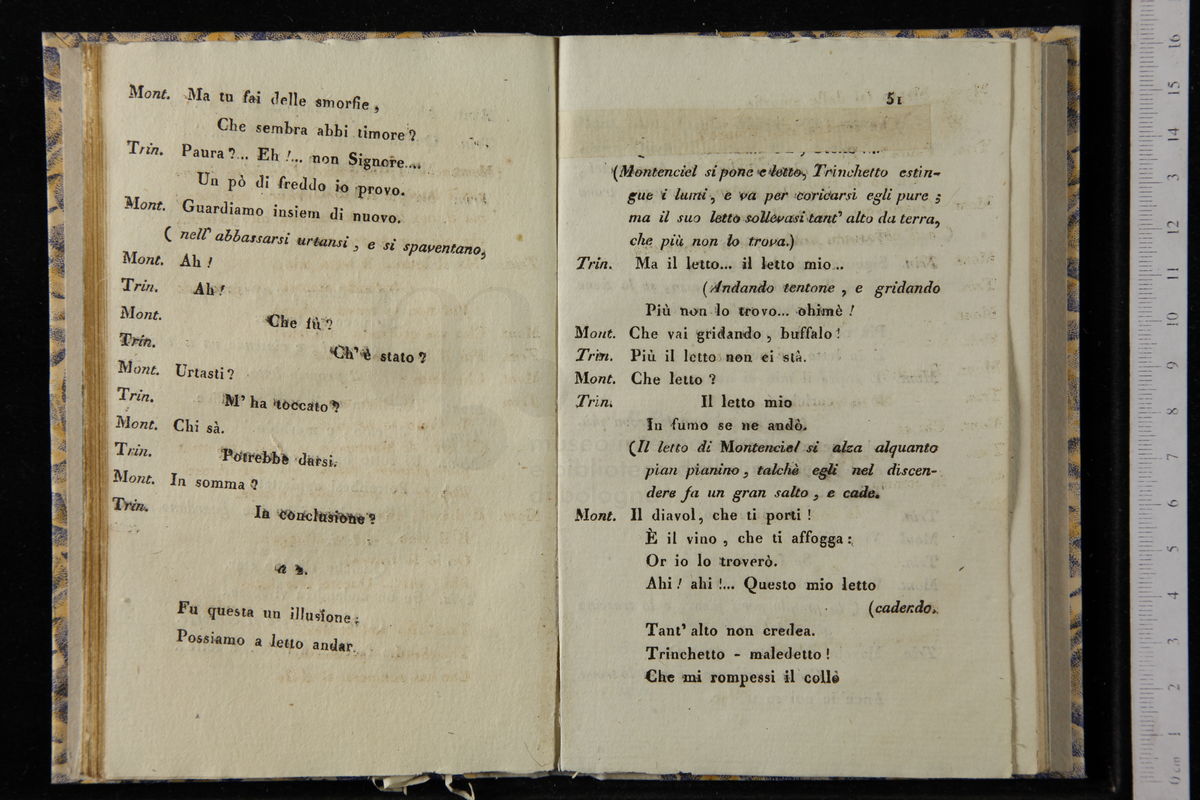 Mont. Ma tu fai delle smorfie,
Che sembra abbi timore?
Trin. Paura?.. Eh!... non Signore....
Un pò di freddo io provo.
Mont. Guardiamo insiem di nuovo.
( nell' abbassarsi urtansi, e si spaventano,
Mont. Ah!
Trin. Ah!
Mont. Che fù?
Trin. Ch' è stato?
Mont. Urtasti?
Trin. M' ha toccato?
Mont. Chi sà.
Trin. Potrebbe darsi.
Mont. In somma?
Trin. In conclusione?
a 2.
Fu questa un illusione;
Possiamo a letto andar.
51
(Montenciel si pone e letto, Trinchetto estin-
gue i lumi, e va per coricarsi egli pure;
ma il suo letto sollevasi tant' alto da terra,
che più non lo trova.)
Trin. Ma il letto... il letto mio..
(Andando tentone, e gridando
Più non lo trovo... ohimè!
Mont. Che vai gridando, buffalo!
Trin. Più il letto non ci stà.
Mont. Che letto?
Trin. Il letto mio
In fumo se ne andò.
(Il letto di Montenciel si alza alquanto
pian pianino, talchè egli nel discen-
dere fa un gran salto, e cade.
Mont. Il diavol, che ti porti!
È il vino, che ti affogga:
Or io lo troverò.
Ahi! ahi!... Questo mio letto
(cadendo.
Tant' alto non credea.
Trinchetto - maledetto!
Che mi rompessi il collo
museo
bibliote
di bologn
0 cm 1 2 3 4 5 6 7 8 9 10 11 12 13 14 15 16